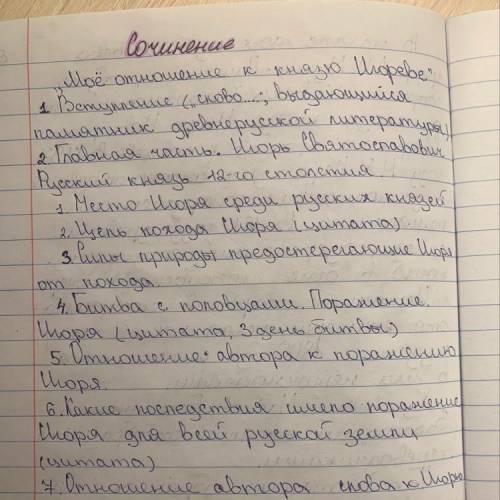 Сочинение
„Моё отношение к князю Игореве"
1. Вступление („слово....; выдающийся
памятник древнерусской литературы)
2. Главная часть. Игорь Святославович
Русский князь 12-го столетия.
1. Место Игоря среди русских князей
2. Цель похода Игоря (цитата)
3. Силы природы предостерегающие Игоря
от похода.
4. Битва с половцами. Поражение
Игоря (цитата, 3 день битвы)
5. Отношение автора к поражению
Игоря.
6. Какие последствия имело поражение
Игоря для всей русской земли
(цитата)
7. Отношение автора слова к Игорю